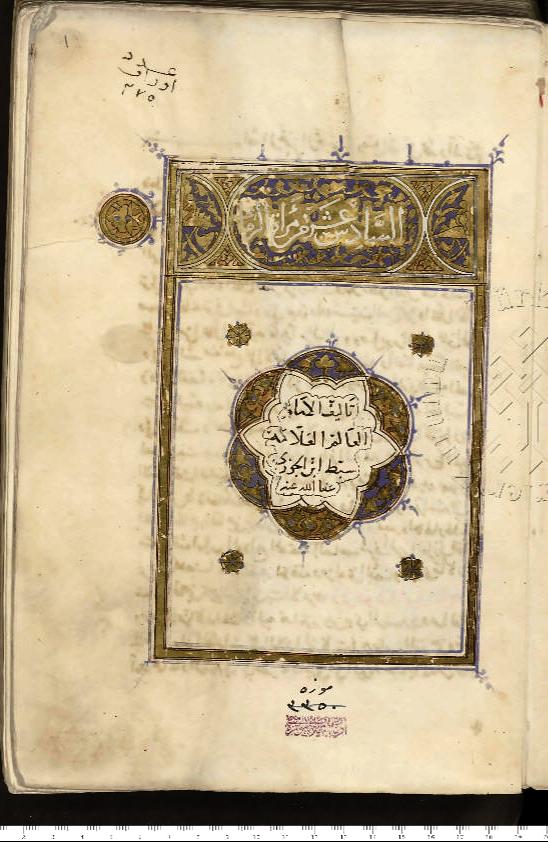 ١
عدد
اوراق
٢٧٥
السادس عشر من مراة الزمان
تاليف الامام
العالم العلامة
سبط ابن الجوزي
عفا الله عنه
موزه